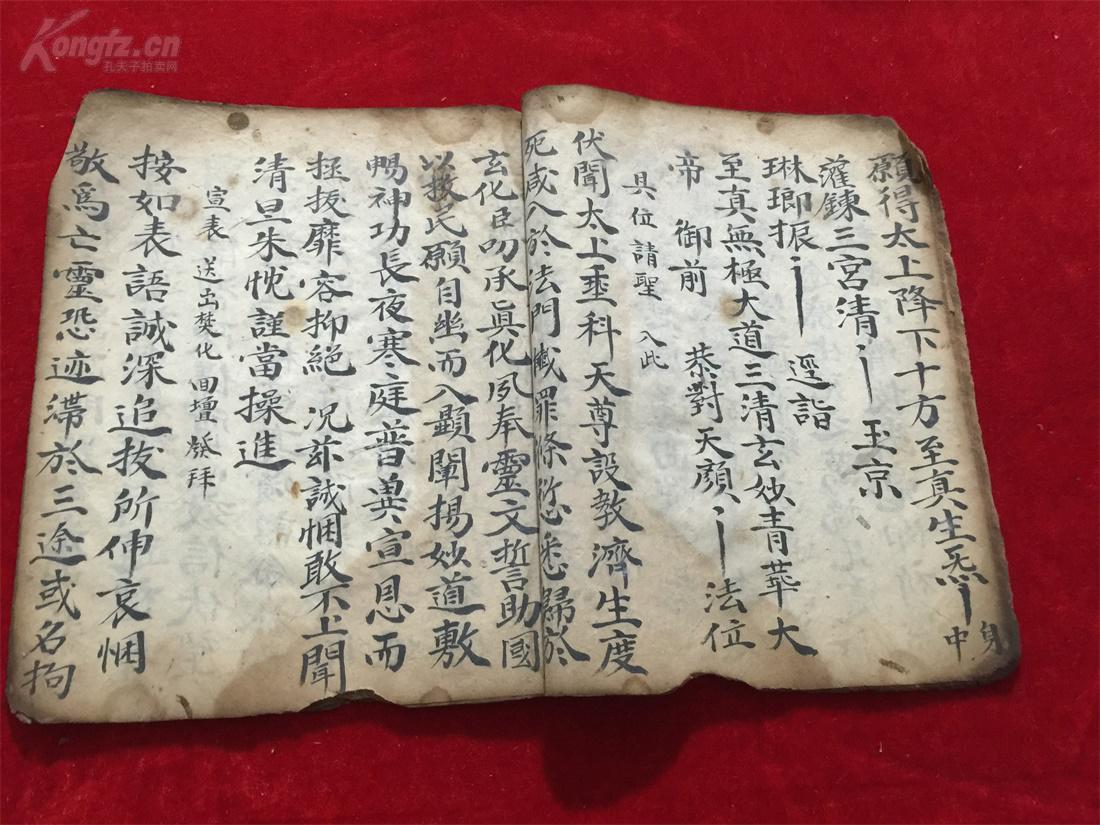 願得太上降下十方至真生炁丨身中
灌鍊三宮清丨玉京
琳瑯振丨 逕詣
至真無極大道三清玄妙青華大
帝 御前 恭對天顏丨法位
具位請聖 入此
伏聞太上垂科天尊設教濟生度
死咸入於法門懺罪條愆悉歸於
玄化臣叨承真化夙奉靈文誓助國
以救民願自幽而入顯闡揚妙道敷
暢神功長夜寒庭普與宣恩而
拯拔靡容抑絕 况茲誠悃敢不上聞
清旦朱忱謹當操進
宣表 送出焚化 回壇 拜
按如表語誠深追拔所伸哀悃
敬爲亡靈恐迹滯於三途或名拘
Kongfz.cn
孔夫子拍卖网